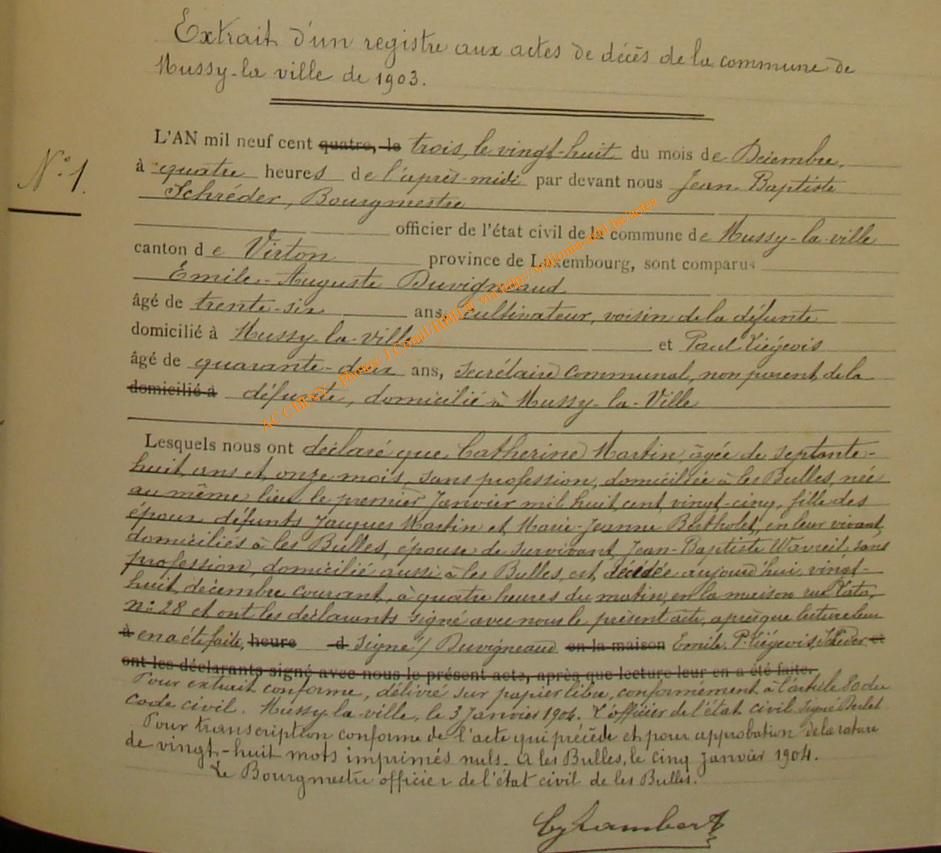 Extrait d'un registre aux actes de décès de la commune de
Mussy-la ville de 1903.
N° 1.
L'AN mil neuf cent quatre, le trois, le vingt-huit du mois de Décembre,
à quatre heures de l'après-midi par devant nous Jean Baptiste
Schréder, Bourgmestre
officier de l'état civil de la commune de Mussy-la-ville
canton de Virton province de Luxembourg, sont comparus
Emile-Auguste Duvigneaud
âgé de trente-six ans, cultivateur, voisin de la défunte
domicilié à Mussy-la-ville et Paul Liégeois
âgé de quarante-deux ans, Secrétaire communal, non parent de la
domicilié à défunte, domicilié à Mussy-la-Ville
Lesquels nous ont déclaré que Catherine Martin âgée de septante-
huit ans et onze mois, sans profession, domiciliée à les Bulles, née
au même lieu le premier Janvier mil huit cent vingt-cinq, fille des
époux défunts Jacques Martin et Marie-Jeanne Bertholet, en leur vivant
domiciliés à les Bulles, épouse de survivant Jean-Baptiste Wavreil, sans
profession, domicilié aussi à les Bulles, est décédée aujourd'hui vingt-
huit décembre courant, à quatre heures du matin, en la maison rue
N° 28 et ont les déclarants signé avec nous le présent acte, après que lecture leur
à en a été faite, heure d signé / Duvigneaud en la maison Emile. P. Liégeois, et
ont les déclarants signé avec nous le présent acte, après que lecture leur en a été faite.
Pour extrait conforme, délivré sur papier libre, conformément à l'article 80 du
Code civil. Mussy-la-ville, le 3 Janvier 1904. L'officier de l'état civil signé
Pour transcription conforme de l'acte qui précède et pour approbation de la rature
de vingt-huit mots imprimés nuls. A les Bulles, le cinq Janvier 1904.
Le Bourgmestre officier de l'état civil de les Bulles.
Lambert